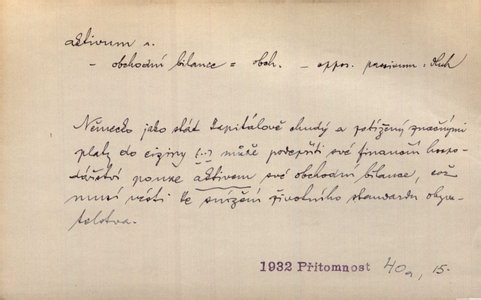 aktivum s.
– obchodní bilance = obch. – oppos. passivum : dluh
Německo jako stát kapitálově chudý a potížený značnými
platy do ciziny (..) může podepříti své finanční hospo-
dářství pouze aktivem své obchodní bilance, což
musí vésti ke snížení životního standardu obyva-
telstva.
1932 Přítomnost 40a, 15.